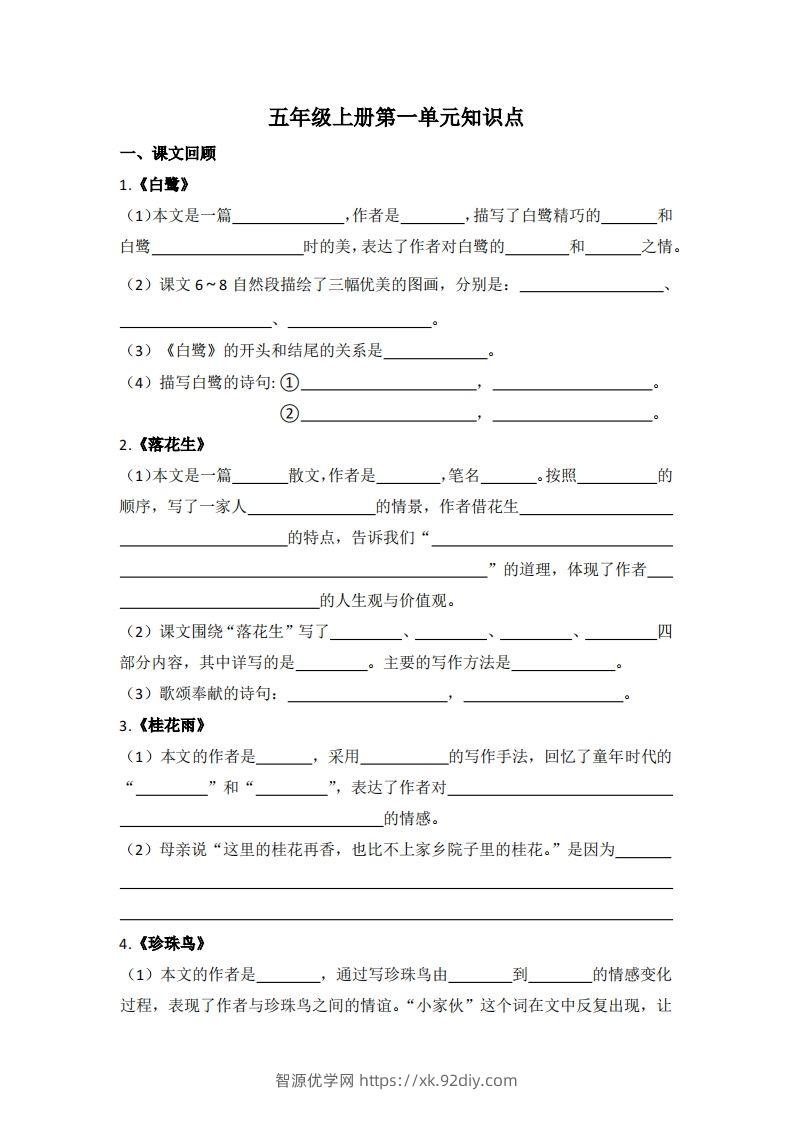 五年级上册第一单元知识点
一、课文回顾
1.《白鹭》
（1）本文是一篇______________，作者是________，描写了白鹭精巧的_______和
白鹭___________________时的美，表达了作者对白鹭的________和_______之情。
（2）课文 6～8 自然段描绘了三幅优美的图画，分别是：__________________、
___________________、__________________。
（3）《白鹭》的开头和结尾的关系是_____________。
（4）描写白鹭的诗句: ①______________________，____________________。
②______________________，____________________。
2.《落花生》
（1）本文是一篇_______散文，作者是________，笔名_______。按照__________的
顺序，写了一家人________________的情景，作者借花生___________________
_____________________的特点，告诉我们“______________________________
______________________________________________”的道理，体现了作者___
_________________________的人生观与价值观。
（2）课文围绕“落花生”写了_________、_________、_________、_________四
部分内容，其中详写的是_________。主要的写作方法是_____________。
（3）歌颂奉献的诗句：____________________，____________________。
3.《桂花雨》
（1）本文的作者是_______，采用___________的写作手法，回忆了童年时代的
“_________”和“_________”，表达了作者对____________________________
_________________________________的情感。
（2）母亲说“这里的桂花再香，也比不上家乡院子里的桂花。”是因为_______
_____________________________________________________________________
_____________________________________________________________________
4.《珍珠鸟》
（1）本文的作者是________，通过写珍珠鸟由________到________的情感变化
过程，表现了作者与珍珠鸟之间的情谊。“小家伙”这个词在文中反复出现，让
智源优学网 https://xk.92diy.com